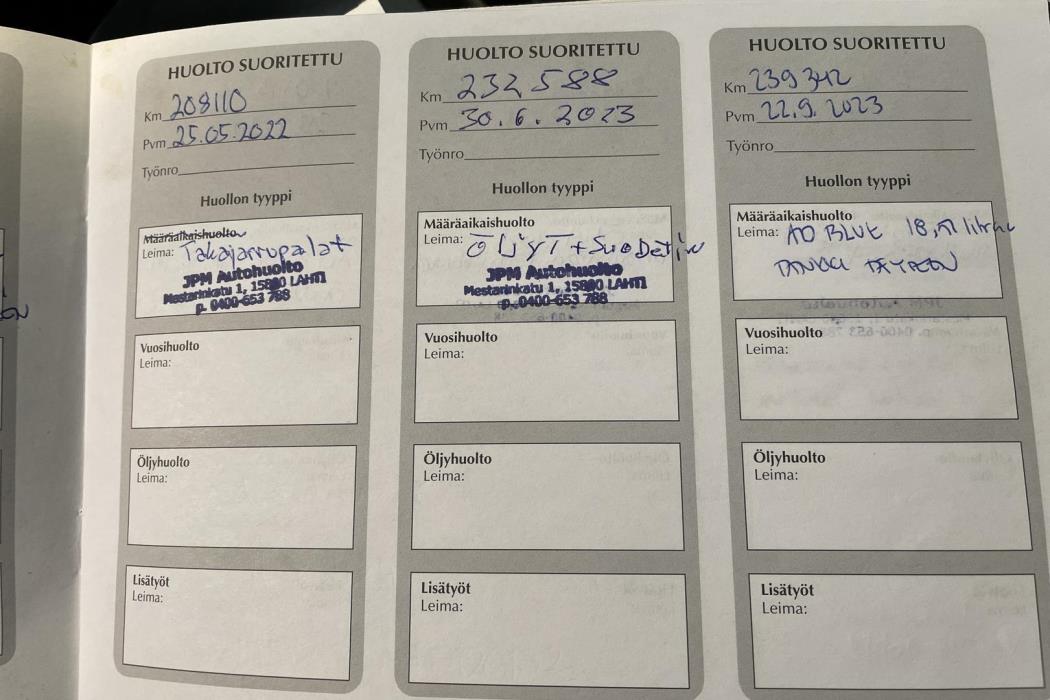 HUOLTO SUORITETTU
Km 208110
Pvm 25.05.2022
Työnro
Huollon tyyppi
Määräaikaishuolto
Leima: Takajarrupalat
JPM Autohuolto
Mestarinkatu 1, 15800 LAHTI
p. 0400-653 788
Vuosihuolto
Leima:
Öljyhuolto
Leima:
Lisätyöt
Leima:
HUOLTO SUORITETTU
Km 232588
Pvm 30.6.2023
Työnro
Huollon tyyppi
Määräaikaishuolto
Leima: ÖljyT + SuoDatin
JPM Autohuolto
Mestarinkatu 1, 15800 LAHTI
p. 0400-653 788
Vuosihuolto
Leima:
Öljyhuolto
Leima:
Lisätyöt
Leima:
HUOLTO SUORITETTU
Km 239342
Pvm 22.9.2023
Työnro
Huollon tyyppi
Määräaikaishuolto
Leima: AD BLUE
TANKKI TÄYTEEN
Vuosihuolto
Leima:
Öljyhuolto
Leima:
Lisätyöt
Leima: